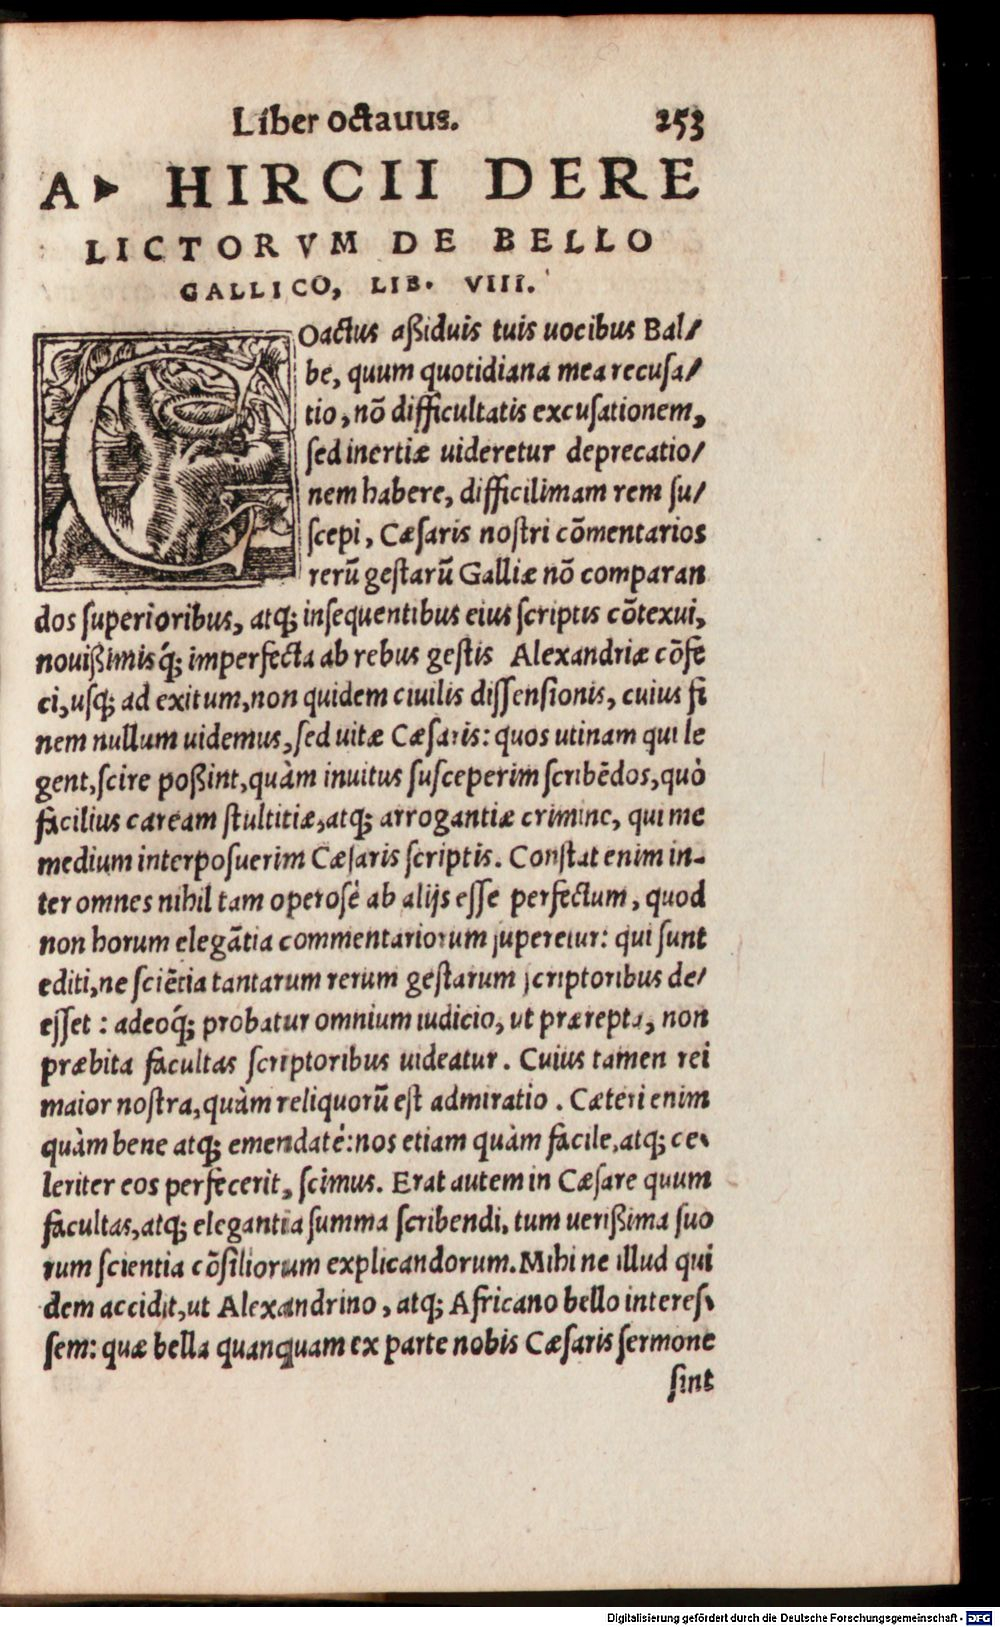 Liber octavus. 253
A▸ HIRCII DERE
LICTORVM DE BELLO
GALLICO, LIB. VIII.
COactus aßiduis tuis uocibus Bal/
be, quum quotidiana mea recusa/
tio, nō difficultatis excusationem,
sed inertiæ uideretur deprecatio/
nem habere, difficilimam rem su/
scepi, Cæsaris nostri cōmentarios
rerū gestarū Galliæ nō comparan
dos superioribus, atq; insequentibus eius scriptis cōtexui,
nouißimisq́; imperfecta ab rebus gestis Alexandriæ cōfe
ci, usq; ad exitum, non quidem ciuilis dissensionis, cuius fi
nem nullum uidemus, sed uitæ Cæsaris: quos utinam qui le
gent, scire poßint, quàm inuitus susceperim scribēdos, quò
facilius caream stultitiæ, atq; arrogantiæ crimine, qui me
medium interposuerim Cæsaris scriptis. Constat enim in-
ter omnes nihil tam operosé ab alijs esse perfectum, quod
non horum elegātia commentariorum superetur: qui sunt
editi, ne sciētia tantarum rerum gestarum scriptoribus de/
esset : adeoq́; probatur omnium iudicio, ut prærepta, non
præbita facultas scriptoribus uideatur. Cuius tamen rei
maior nostra, quàm reliquorū est admiratio. Cæteri enim
quàm bene atq; emendaté: nos etiam quàm facile, atq; ce-
leriter eos perfecerit, scimus. Erat autem in Cæsare quum
facultas, atq; elegantia summa scribendi, tum uerißima suo
rum scientia cōsiliorum explicandorum. Mihi ne illud qui
dem accidit, ut Alexandrino, atq; Africano bello interes-
sem: quæ bella quanquam ex parte nobis Cæsaris sermone
sint
Digitalisierung gefördert durch die Deutsche Forschungsgemeinschaft - DFG